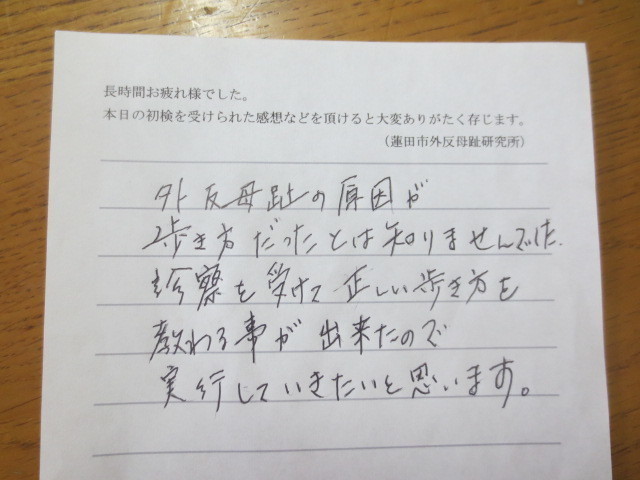 長時間お疲れ様でした。
本日の初検を受けられた感想などを頂けると大変ありがたく存じます。
（蓮田市外反母趾研究所）
外反母趾の原因が
歩き方だったとは知りませんでした.
診察を受けて正しい歩き方を
教わる事が出来たので
実行していきたいと思います。